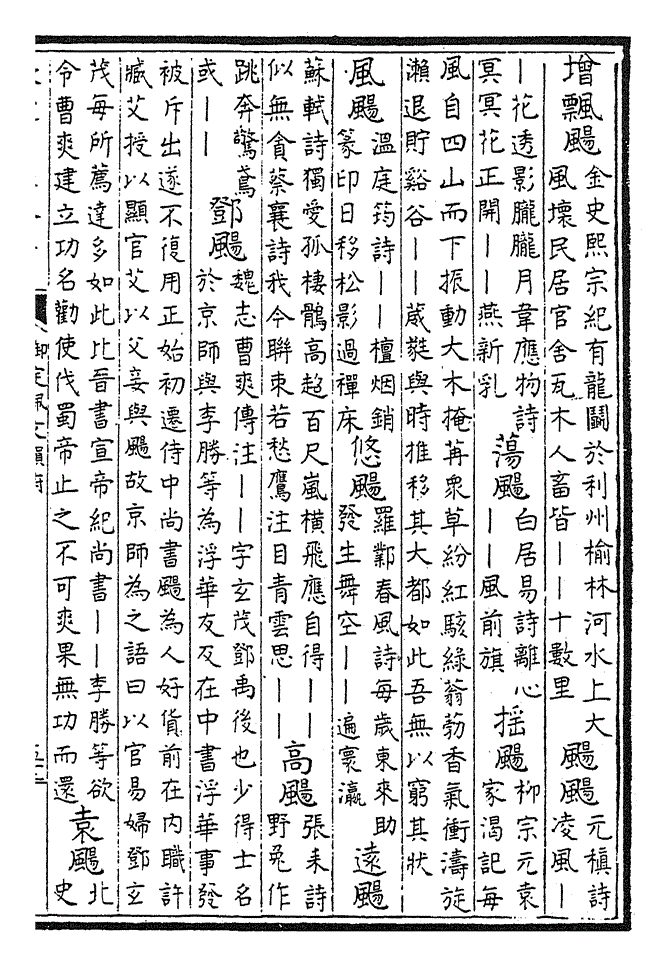 增飄颺
金史熙宗紀有龍鬭於利州榆林河水上大
風壞民居官舍瓦木人畜皆――十數里
颺颺
元稹詩
凌風―
―花透影朧朧月韋應物詩
冥冥花正開――燕新乳
蕩颺
白居易詩離心
――風前旗
搖颺
柳宗元袁
家渴記每
風自四山而下振動大木掩苒衆草紛紅駭綠蓊葧香氣衝濤旋
瀨退貯谿谷――葳蕤與時推移其大都如此吾無以窮其狀
風颺
溫庭筠詩――檀烟銷
篆印日移松影過禪床
悠颺
羅鄴春風詩每歲東來助
發生舞空――遍寰瀛
遠颺
蘇軾詩獨愛孤棲鶻高超百尺嵐橫飛應自得――
似無貪蔡襄詩我今聯束若愁鷹注目青雲思――
高颺
張耒詩
野兔作
跳奔驚鳶
或――
鄧颺
魏志曹爽傳注――字玄茂鄧禹後也少得士名
於京師與李勝等為浮華友及在中書浮華事發
被斥出遂不復用正始初遷侍中尚書颺為人好貨前在內職許
臧艾授以顯官艾以父妾與颺故京師為之語曰以官易婦鄧玄
茂每所薦達多如此比晉書宣帝紀尚書――李勝等欲
令曹爽建立功名勸使伐蜀帝止之不可爽果無功而還
袁颺
北
史